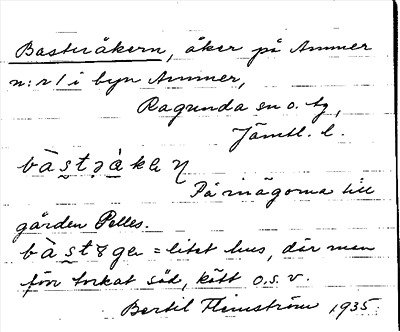 Basteråkern, åker på Ammer
n:r 1 i byn Ammer,
Ragunda sn o. tg,
Jämtl. l.
På inägorna till
gården Pelles.
= litet hus, där man
förr torkat säd, kött o.s.v.
Bertil Flemström 1935.